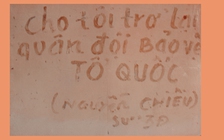 cho tôi trơ lại
quân đội Bảo vệ
TỔ QUỐC
(NGUYỄN CHIẾU)
SƯ 3Đ